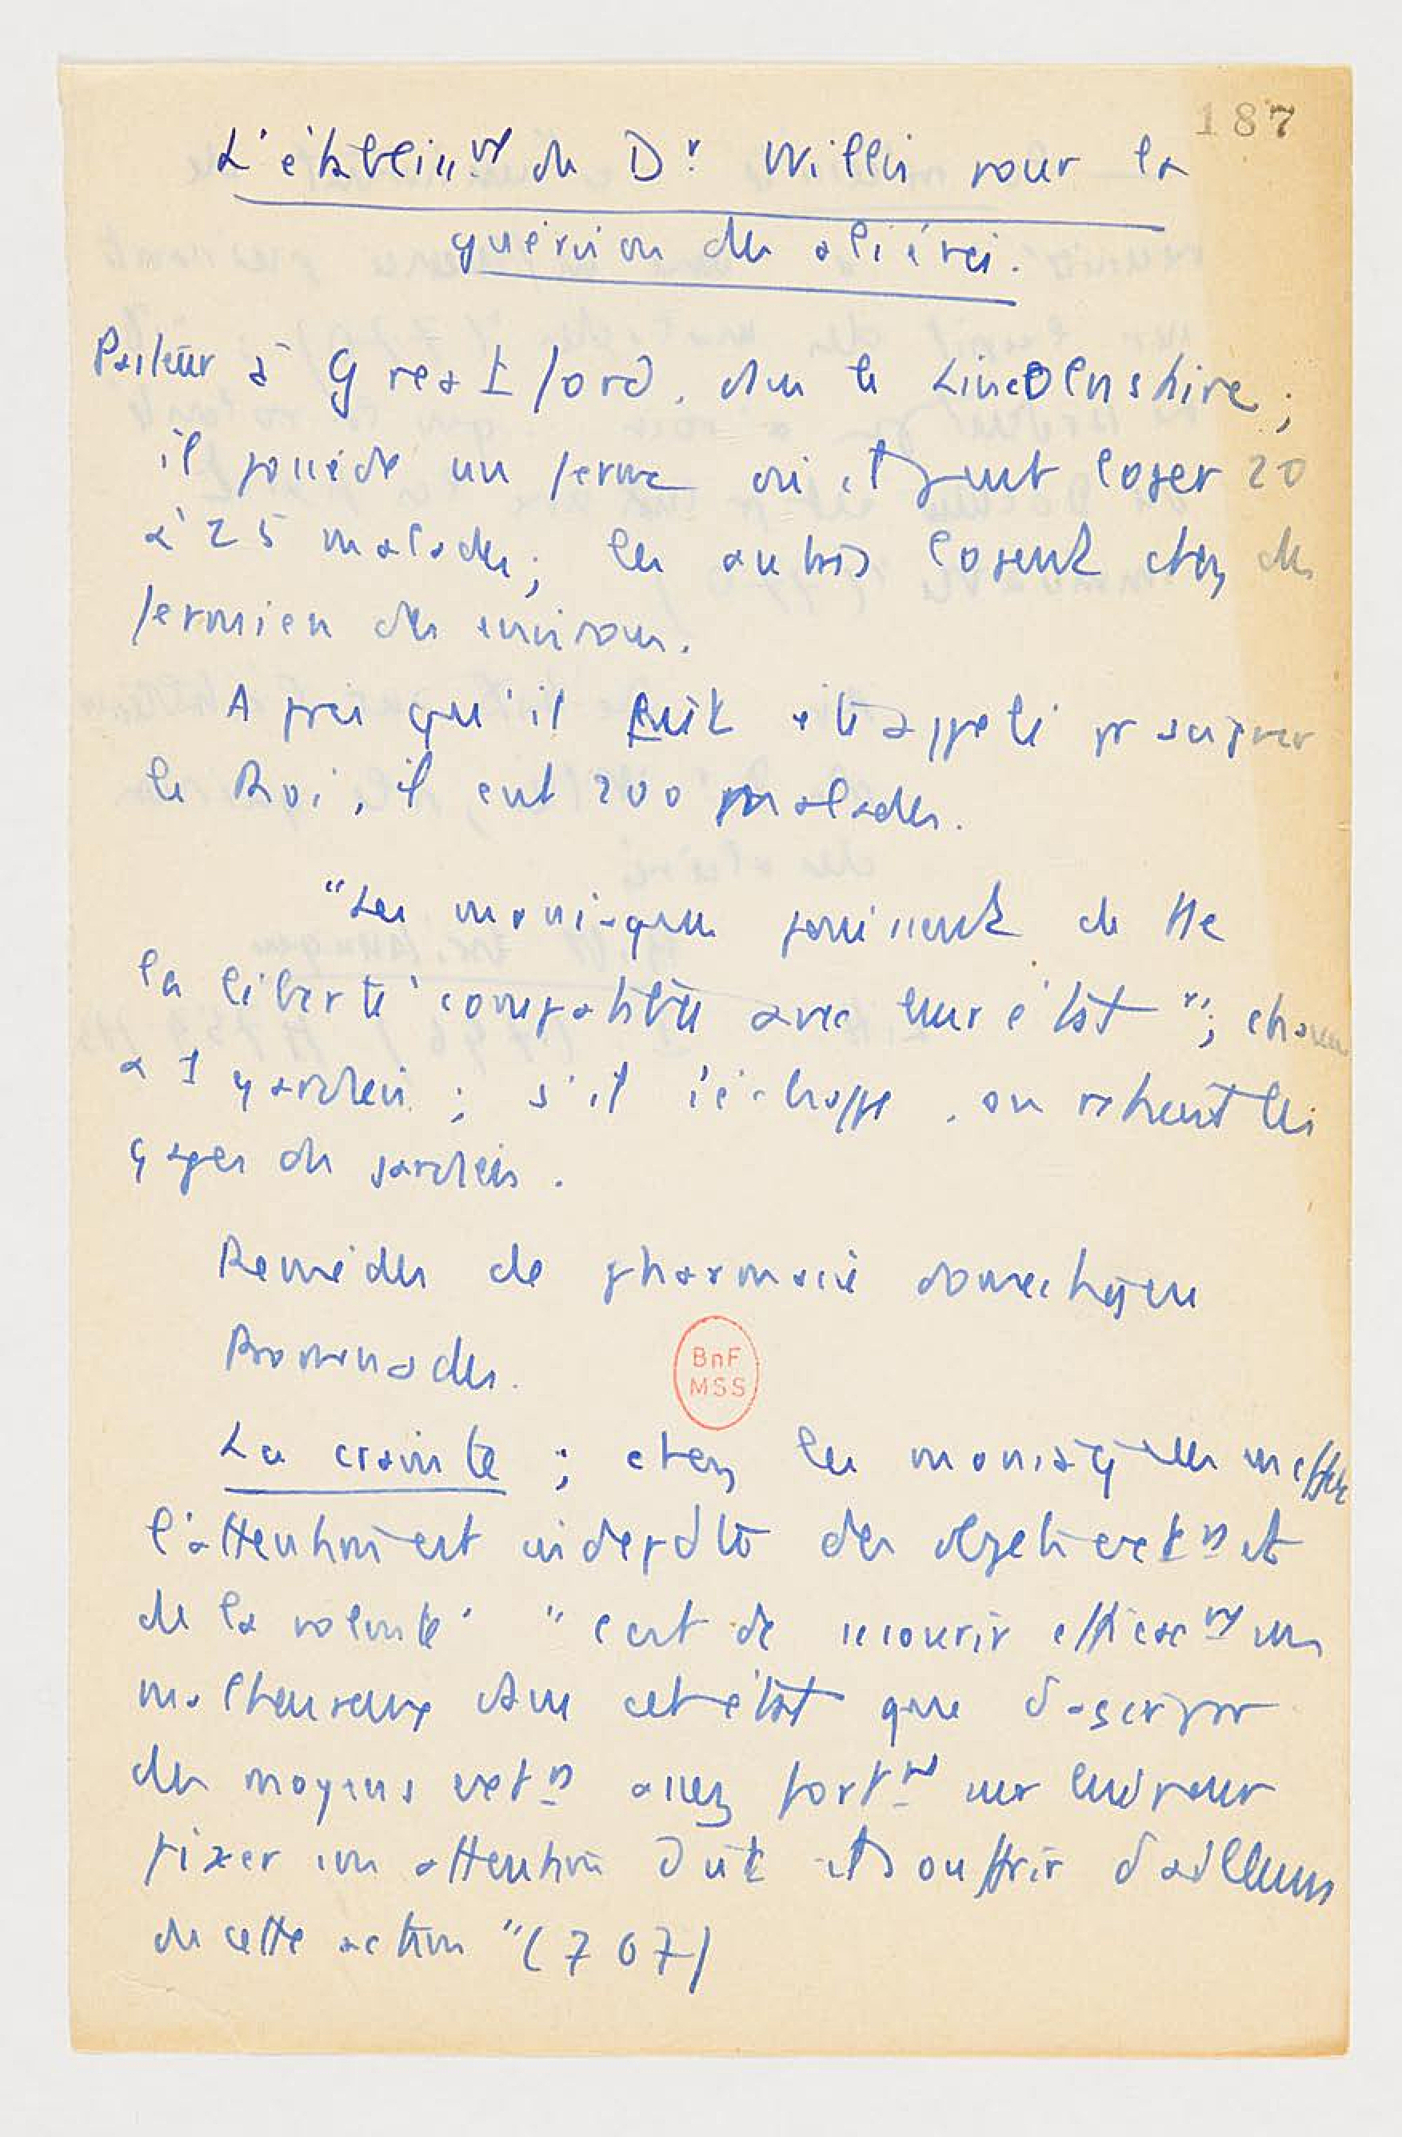 187
L'établissmt du Dr Willis pour la
guérison des aliénés.
Pasteur à Greatford, dans le Lincolnshire;
il possède une ferme où il peut loger 20
à 25 malades; les autres logent chez des
fermiers des environs.
Après qu'il eût été appelé pr soigner
le Roi, il eut 200 malades.
"Les maniaques jouissent de tte
la liberté compatible avec leur état"; chacun
a 1 gardien; s'il s'échappe, on retient les
gages du gardien.
Remèdes de pharmacie domestique
Promenades.
BnF
MSS
La crainte; chez les maniaques en effet
l'attention est indepdte des objets extrs et
de la volonté "c'est de secourir efficacmt un
malheureux dans cet état que d'essayer
des moyens extrs assez fortmt sur lui pour
fixer son attention dût il souffrir d'ailleurs
de cette action" (707)